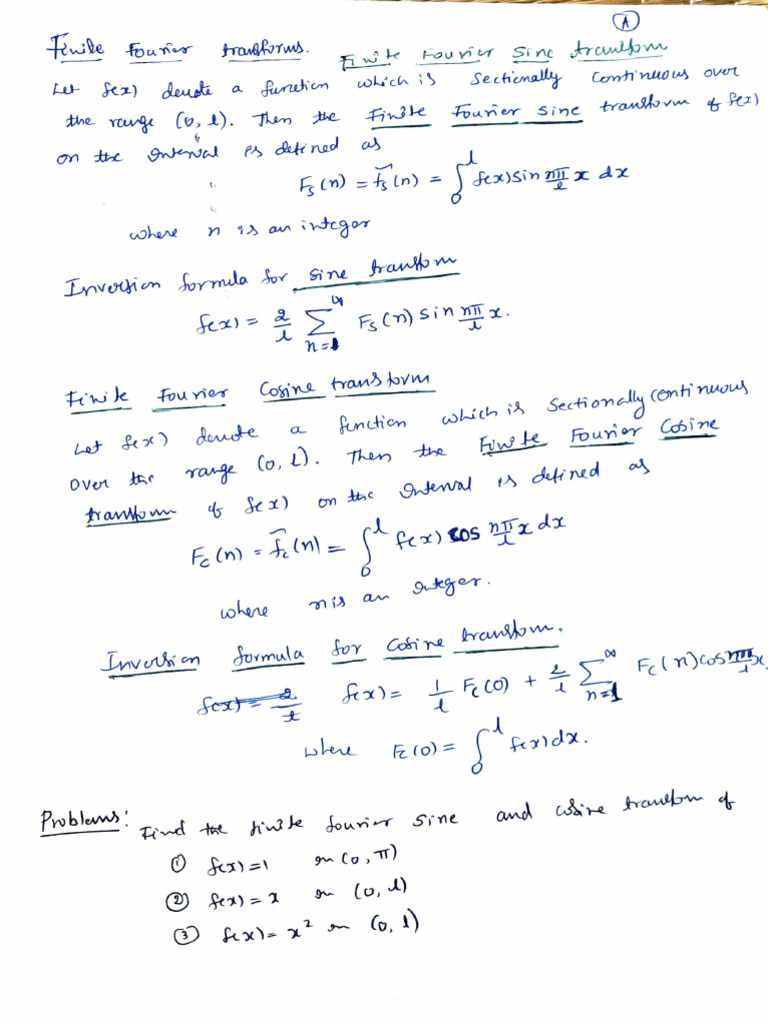 A
Finite Fourier transforms. Finite Fourier Sine transform
Let f(x) denote a function which is sectionally continuous over
the range (0, l). Then the Finite Fourier Sine transform of f(x)
on the interval is defined as
F_s(n) = f̄_s(n) = ∫_0^l f(x) sin nπ/l x dx
where n is an integer
Inversion formula for sine transform
f(x) = 2/l ∑_{n=1}^∞ F_s(n) sin nπ/l x.
Finite Fourier Cosine transform
Let f(x) denote a function which is sectionally continuous
over the range (0, l). Then the Finite Fourier Cosine
transform of f(x) on the interval is defined as
F_c(n) = f̄_c(n) = ∫_0^l f(x) cos nπ/l x dx
where n is an integer.
Inversion formula for Cosine transform.
f(x) = 2/l f(x) = 1/l F_c(0) + 2/l ∑_{n=1}^∞ F_c(n) cos nπ/l x.
where F_c(0) = ∫_0^l f(x) dx.
Problems: Find the finite fourier sine and cosine transform of
① f(x) = 1 on (0, π)
② f(x) = x on (0, l)
③ f(x) = x² on (0, l)